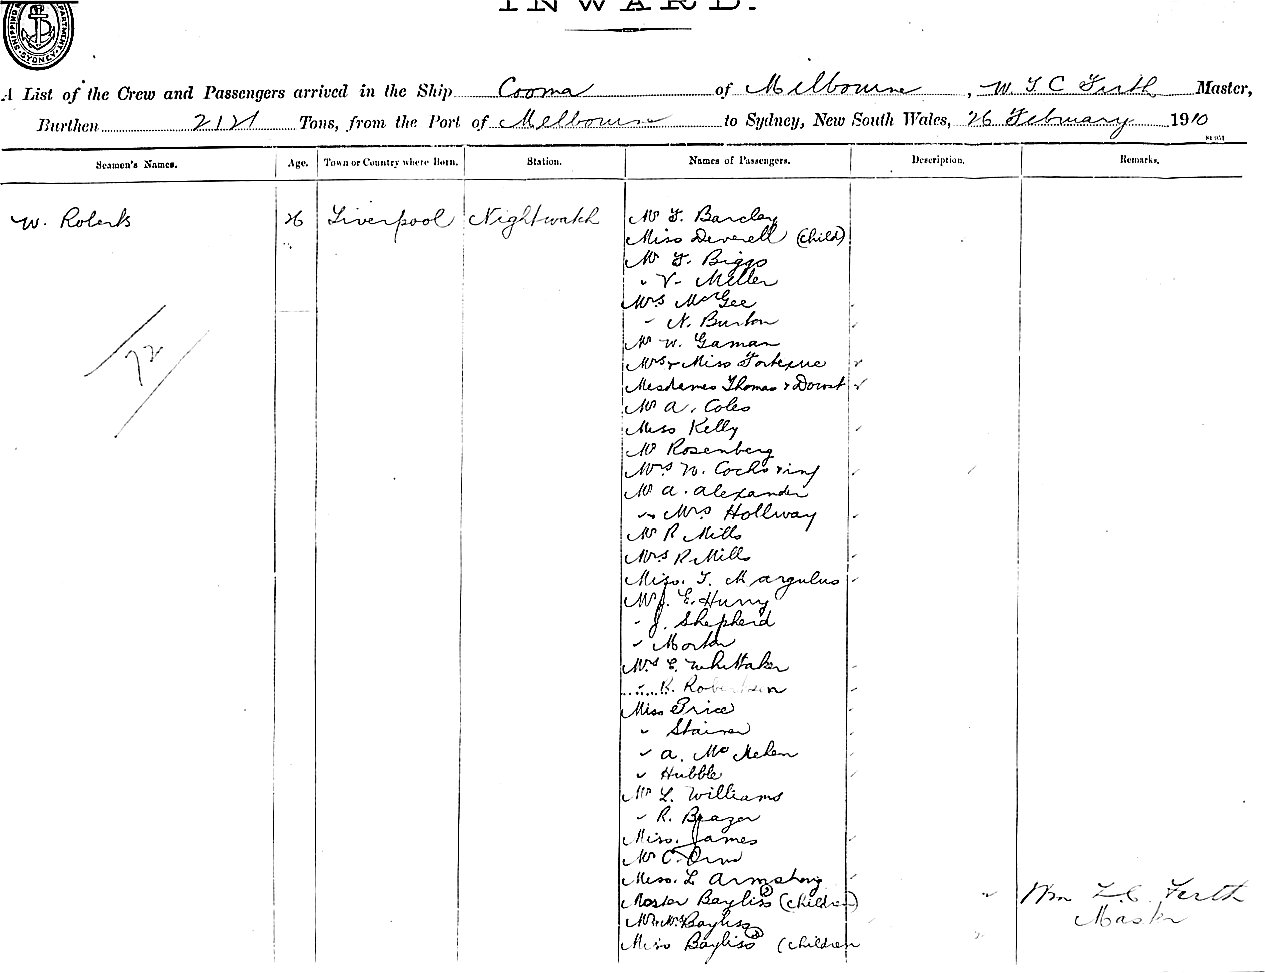 INWARD.
SHIPPING DEPARTMENT SYDNEY
A List of the Crew and Passengers arrived in the Ship Cooma of Melbourne, W. F. C Firth Master,
Burthen 2121 Tons, from the Port of Melbourne to Sydney, New South Wales, 26 February 1910
Seamen's Names. Age. Town or Country where Born. Station. Names of Passengers. Description. Remarks.
W. Roberts 26 Liverpool Nightwatch Mr F. Barclay
Miss Deverell (child)
Mr F. Biggs
" V. Miller
Mrs McGee
" N. Burton
Mr W. Gaman
Mrs & Miss Fortescue
72
Mesdames Thomas & Dowst
Mr A. Coles
Miss Kelly
Mr Rosenberg
Mrs W. Cocks & inf
Mr A. Alexander
" Mrs Hollway
Mr R Mills
Mrs R. Mills
Miss. F. Margulus
Mr J. E. Hurry
" J. Shepherd
" Morton
Mrs E. Whittaker
" K. Robertson
Miss Price
" Stainer
" A. Mc
" Hubble
Mr L. Williams
" R. Brazer
Miss. James
Mr C. Orne
Miss. L Armstrong
Master Bayliss 2 (children)
Wm F. C. Firth
Master
Mr & Mrs Bayliss
Miss Bayliss 3 (children